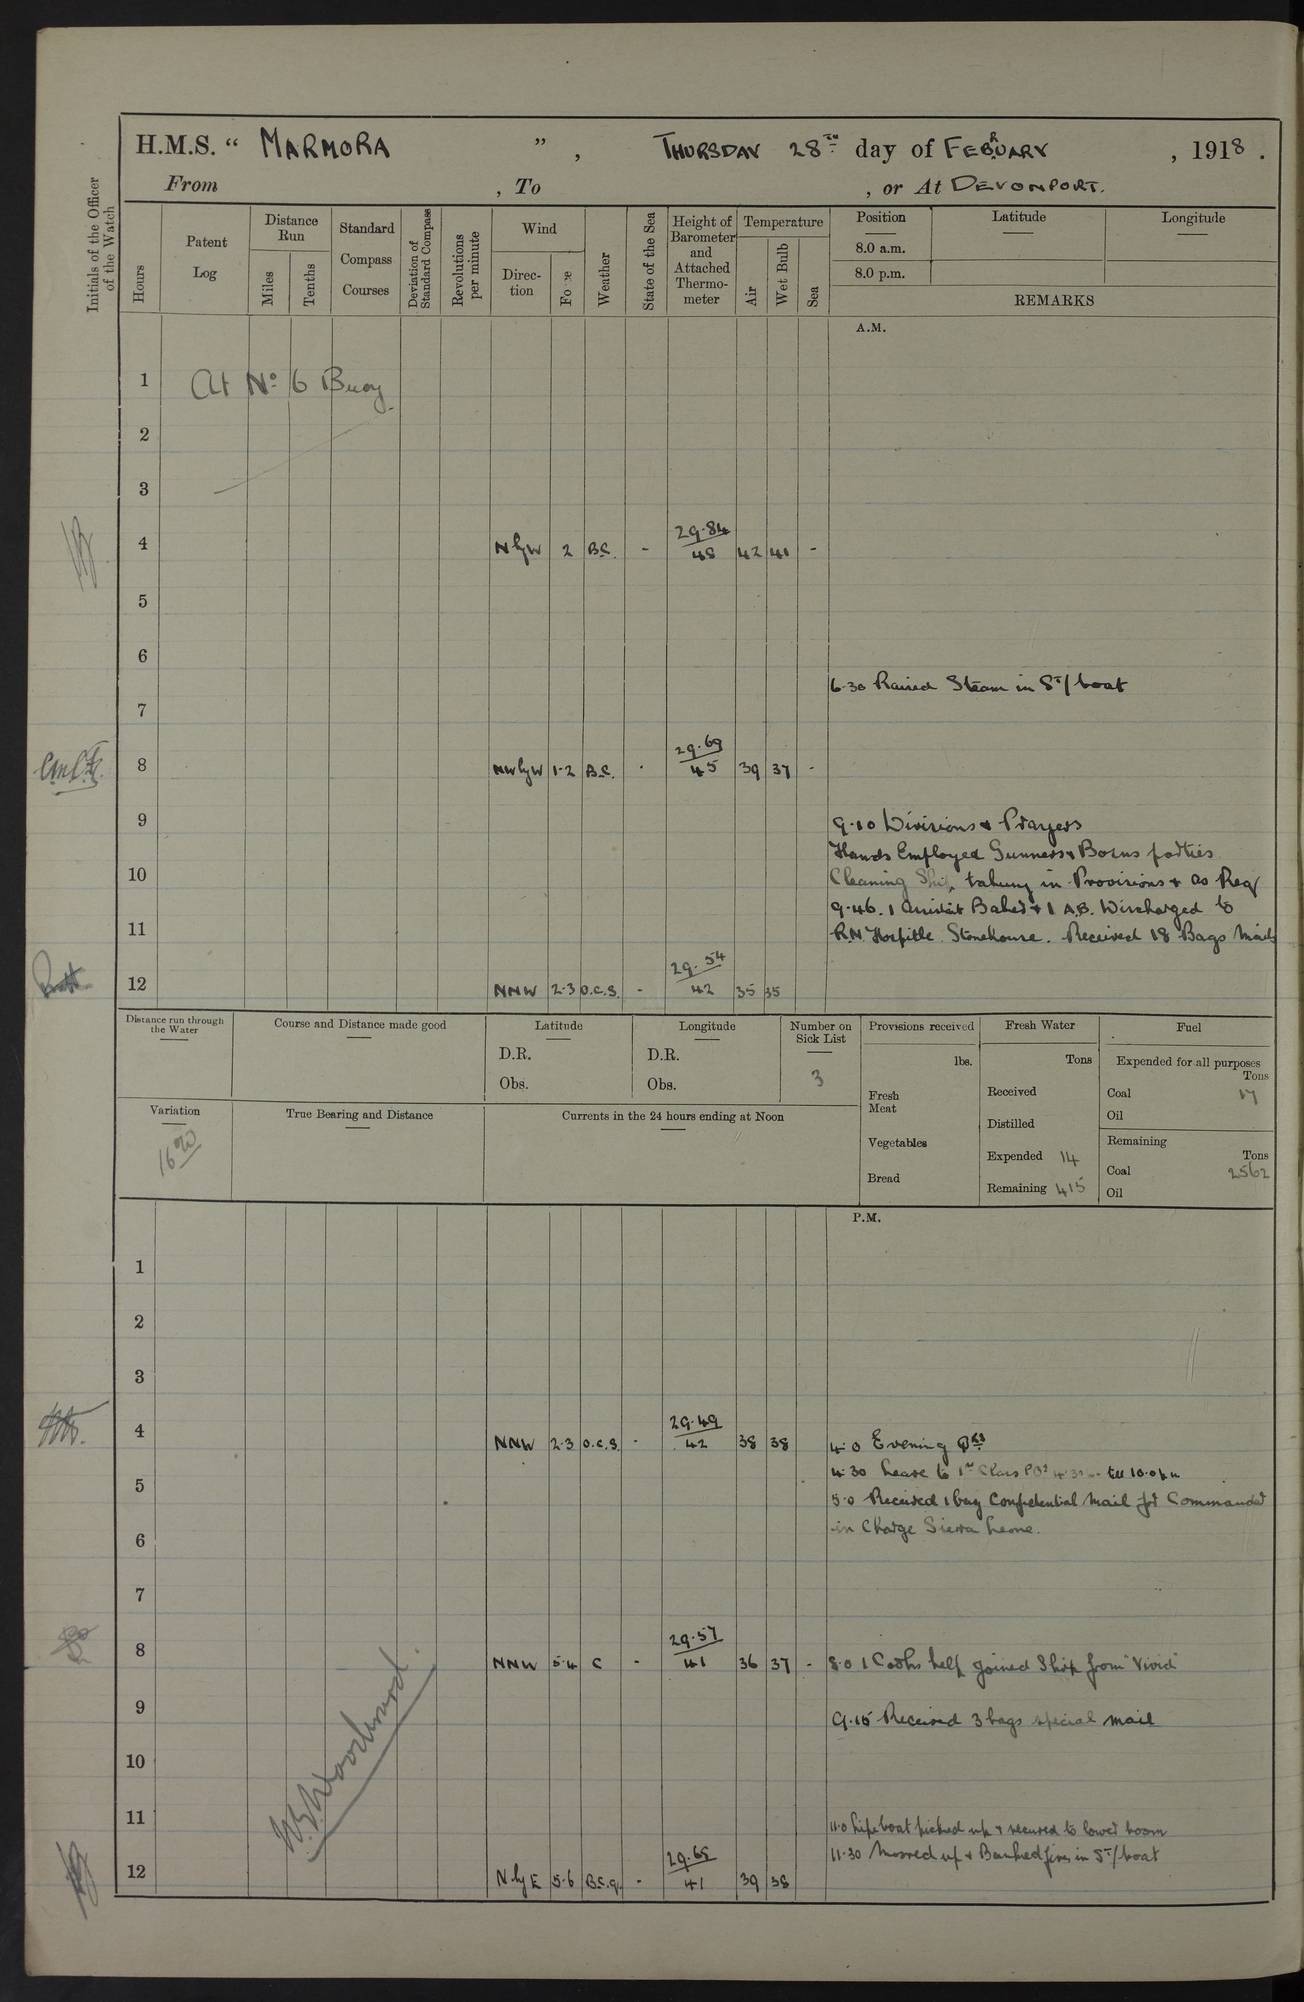 H.M.S. “ MARMORA ” , THURSDAY 28TH day of FEBRUARY , 1918 .
From , To , or At DEVONPORT.
Initials of the Officer of the Watch
Hours
Patent Log
Distance Run
Miles
Tenths
Standard Compass Courses
Deviation of Standard Compass
Revolutions per minute
Wind
Direc-tion
Force
Weather
State of the Sea
Height of Barometer and Attached Thermo-meter
Temperature
Air
Wet Bulb
Sea
Position Latitude Longitude
8.0 a.m.
8.0 p.m.
REMARKS
A.M.
1 At No 6 Buoy
2
3
4 N by W 2 B.C. - 29.84 / 48 42 41 -
5
6
6.30 Raised Steam in St/boat
7
8 NW by W 1-2 B.C. - 29.69 / 45 39 37 -
9
9.10 Divisions & Prayers
Hands Employed Gunners & Bosns parties
10
Cleaning Ship, taking in Provisions & as Req
9.46. 1 Baker & 1 A.B. Discharged to
11
R.N. Hospitle Stonehouse. Received 18 Bags Mails
12 NNW 2-3 O.C.S. - 29.54 / 42 35 35
Distance run through the Water
Course and Distance made good
Latitude
D.R.
Obs.
Longitude
D.R.
Obs.
Number on Sick List
3
Provisions received
lbs.
Fresh Meat
Vegetables
Bread
Fresh Water
Tons
Received
Distilled
Expended 14
Remaining 415
Fuel
Expended for all purposes
Tons
Coal 17
Oil
Remaining
Tons
Coal 2562
Oil
Variation
16° W
True Bearing and Distance
Currents in the 24 hours ending at Noon
P.M.
1
2
3
4 NNW 2-3 O.C.S. - 29.49 / 42 38 38 4.0 Evening Qrs
4.30 Leave to 1st Class POs till 10.0 pm
5
5.0 Received 1 bag Confidential Mail for Commander
in Charge Sierra Leone.
6
7
8 NNW 5-4 C - 29.57 / 41 36 37 - 8.0 1 Cooks help joined Ship from "Vivid"
9
9.15 Received 3 bags special mail
10
11
11.0 Lifeboat picked up & secured to lower boom
11.30 Moored up & Banked fires in St/boat
12 N by E 5-6 B.C.q. - 29.65 / 41 39 38
Woodward.